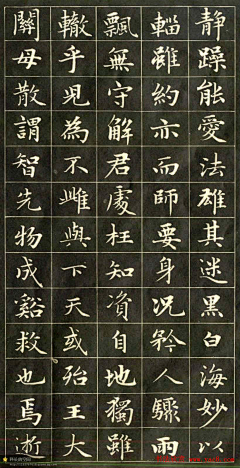 靜躁能愛法雄其迷黑白海妙以
輜雖約亦而師要身況矜人驟雨
飄無守解君處枉知資自地獨雖
轍乎兒為不雌與下天或殆王大
關母散謂智先物成谿救也焉逝